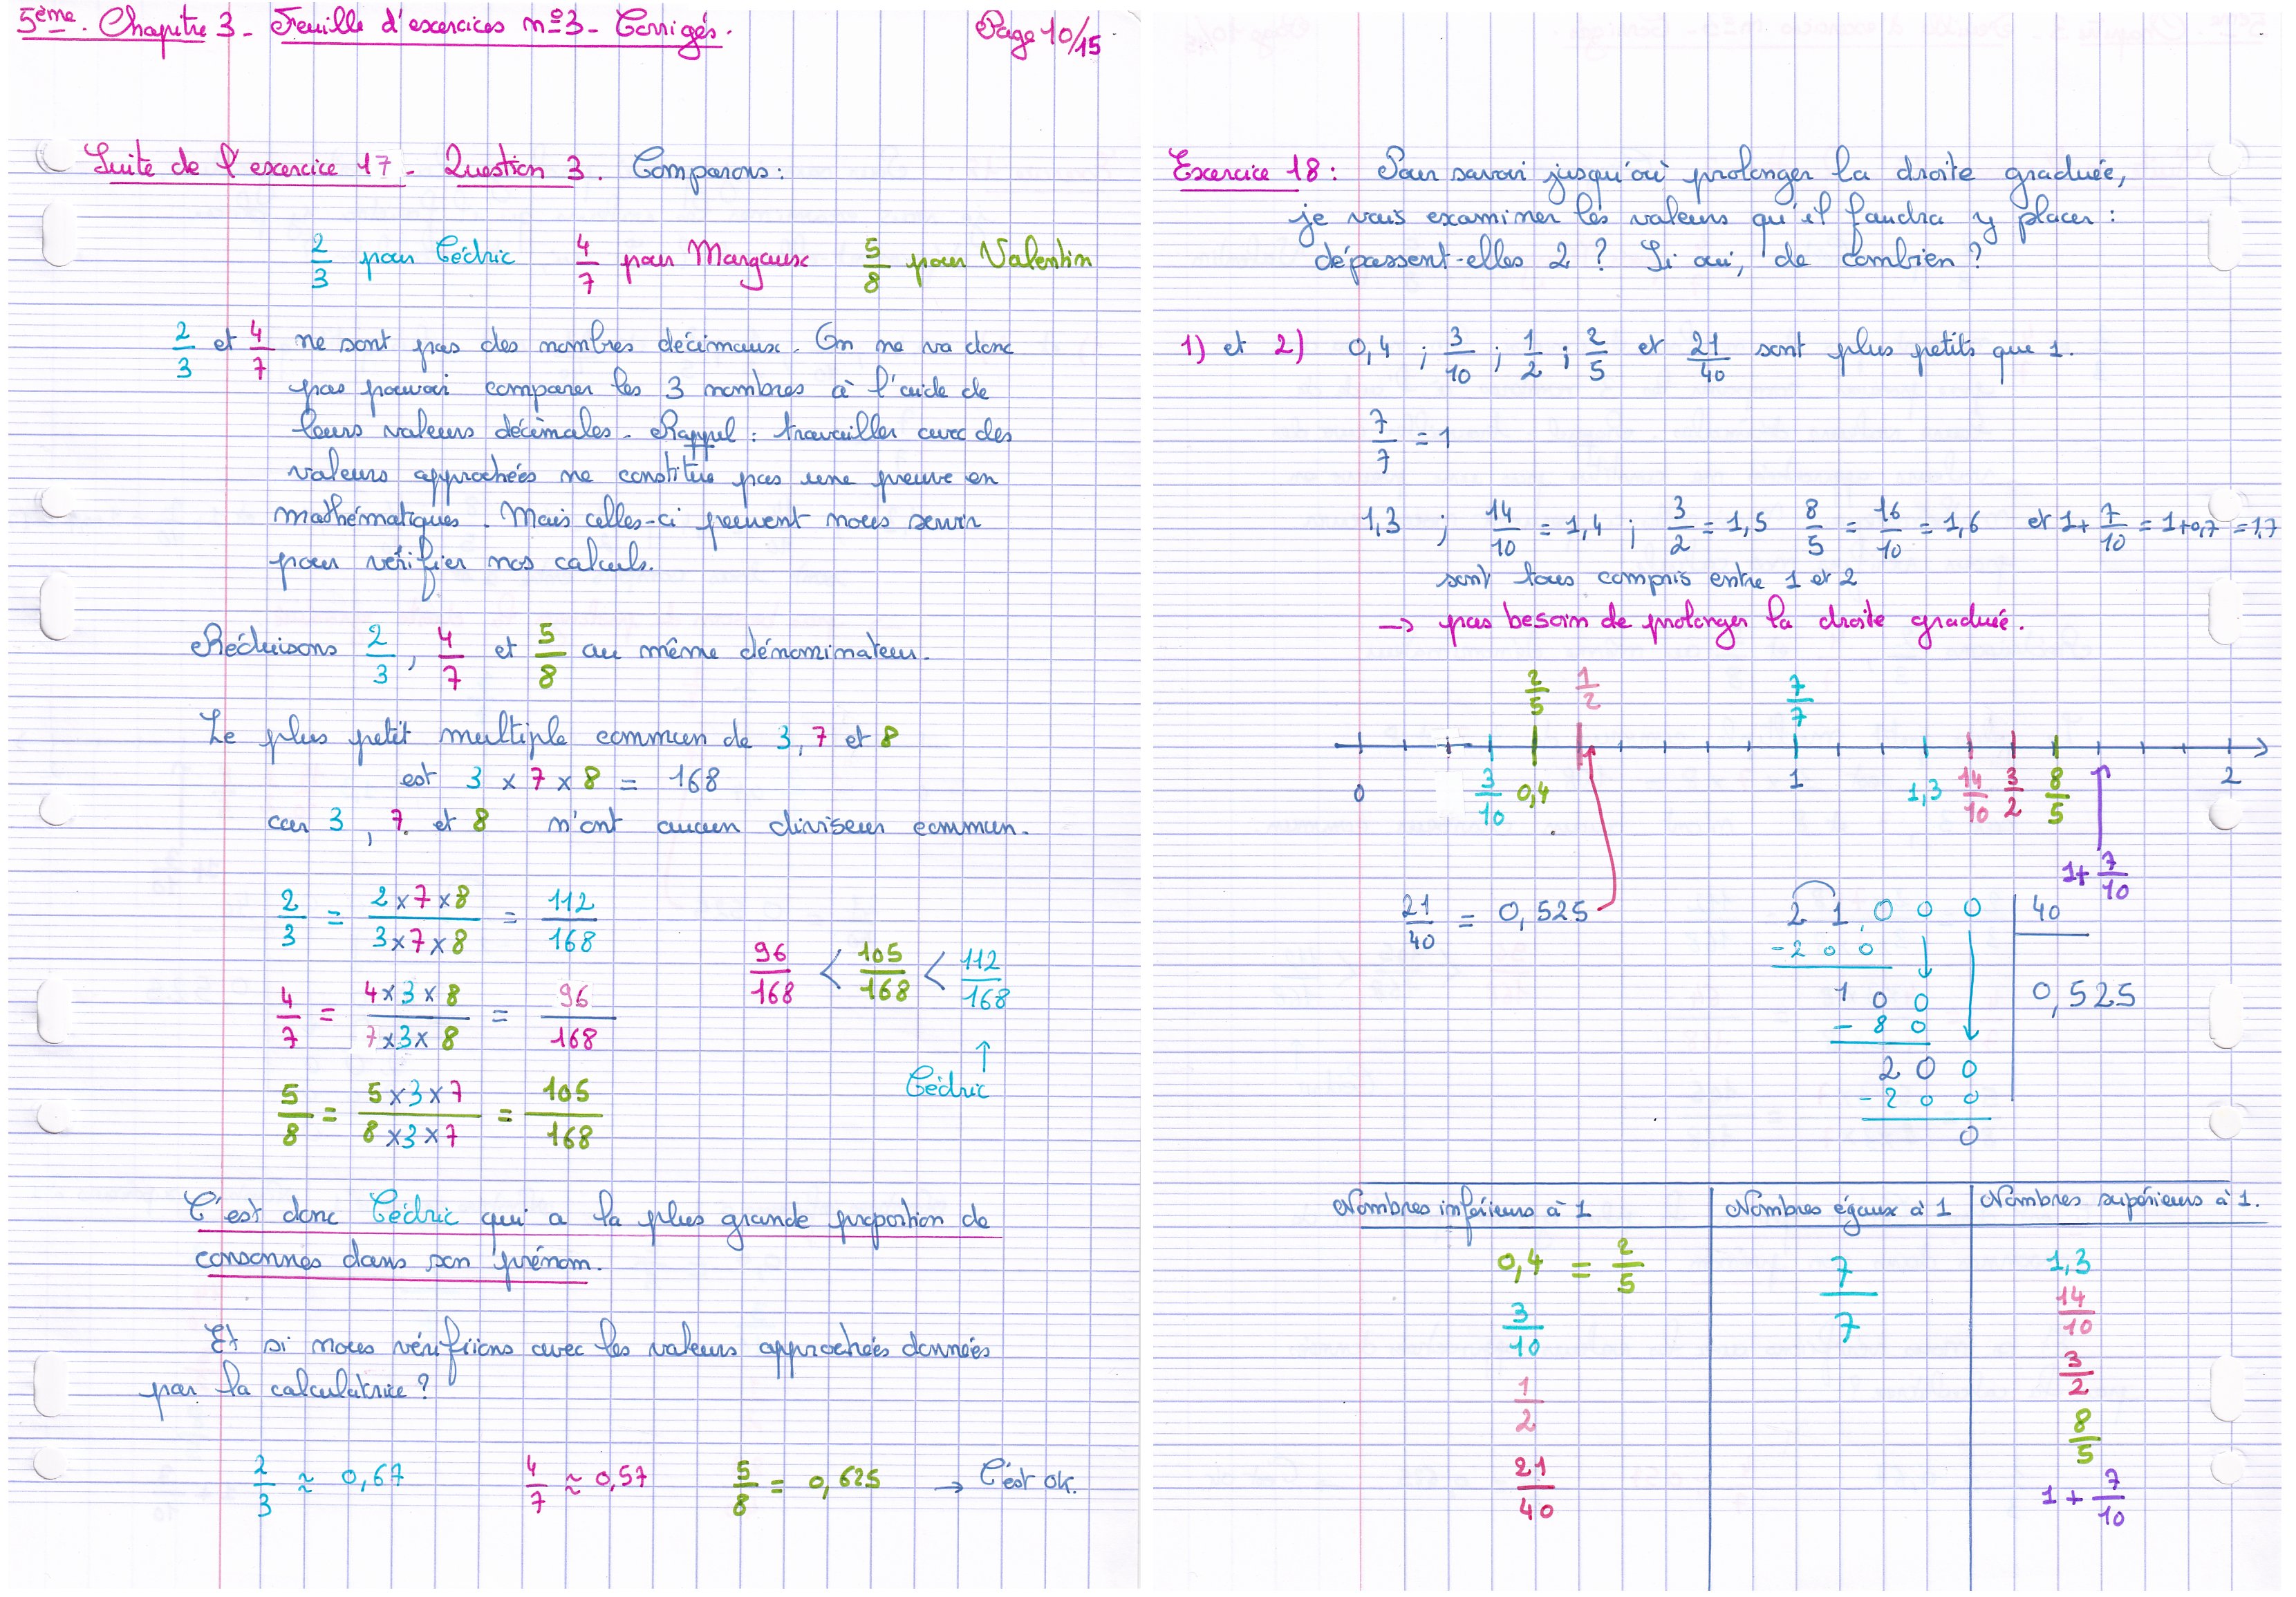 5ème. Chapitre 3 - Feuille d'exercices n°3 - Corrigés.
Page 10/15
Suite de l'exercice 17 - Question 3. Comparons :
2/3 pour Cédric 4/7 pour Margaux 5/8 pour Valentin
2/3 et 4/7 ne sont pas des nombres décimaux. On ne va donc
pas pouvoir comparer les 3 nombres à l'aide de
leurs valeurs décimales. Rappel : travailler avec des
valeurs approchées ne constitue pas une preuve en
mathématiques. Mais celles-ci peuvent nous servir
pour vérifier nos calculs.
Réduisons 2/3, 4/7 et 5/8 au même dénominateur.
Le plus petit multiple commun de 3, 7 et 8
est 3 × 7 × 8 = 168
car 3, 7 et 8 n'ont aucun diviseur commun.
2/3 = 2×7×8/3×7×8 = 112/168
4/7 = 4×3×8/7×3×8 = 96/168
5/8 = 5×3×7/8×3×7 = 105/168
96/168 < 105/168 < 112/168
↑
Cédric
C'est donc Cédric qui a la plus grande proportion de
consonnes dans son prénom.
Et si nous vérifiions avec les valeurs approchées données
par la calculatrice ?
2/3 ≈ 0,67 4/7 ≈ 0,57 5/8 = 0,625 → C'est ok.
Exercice 18 : Pour savoir jusqu'où prolonger la droite graduée,
je vais examiner les valeurs qu'il faudra y placer :
dépassent-elles 2 ? Si oui, de combien ?
1) et 2) 0,4 ; 3/10 ; 1/2 ; 2/5 et 21/40 sont plus petits que 1.
7/7 = 1
1,3 ; 14/10 = 1,4 ; 3/2 = 1,5 8/5 = 16/10 = 1,6 et 1+7/10 = 1+0,7 = 1,7
sont tous compris entre 1 et 2
→ pas besoin de prolonger la droite graduée.
2/5 1/2 7/7
0 3/10 0,4 1 1,3 14/10 3/2 8/5 2
1+7/10
21/40 = 0,525
21,000 | 40
-200
100 0,525
-80
200
-200
0
Nombres inférieurs à 1 | Nombres égaux à 1 | Nombres supérieurs à 1.
0,4 = 2/5 7/7 1,3
3/10 14/10
1/2 3/2
21/40 8/5
1 + 7/10